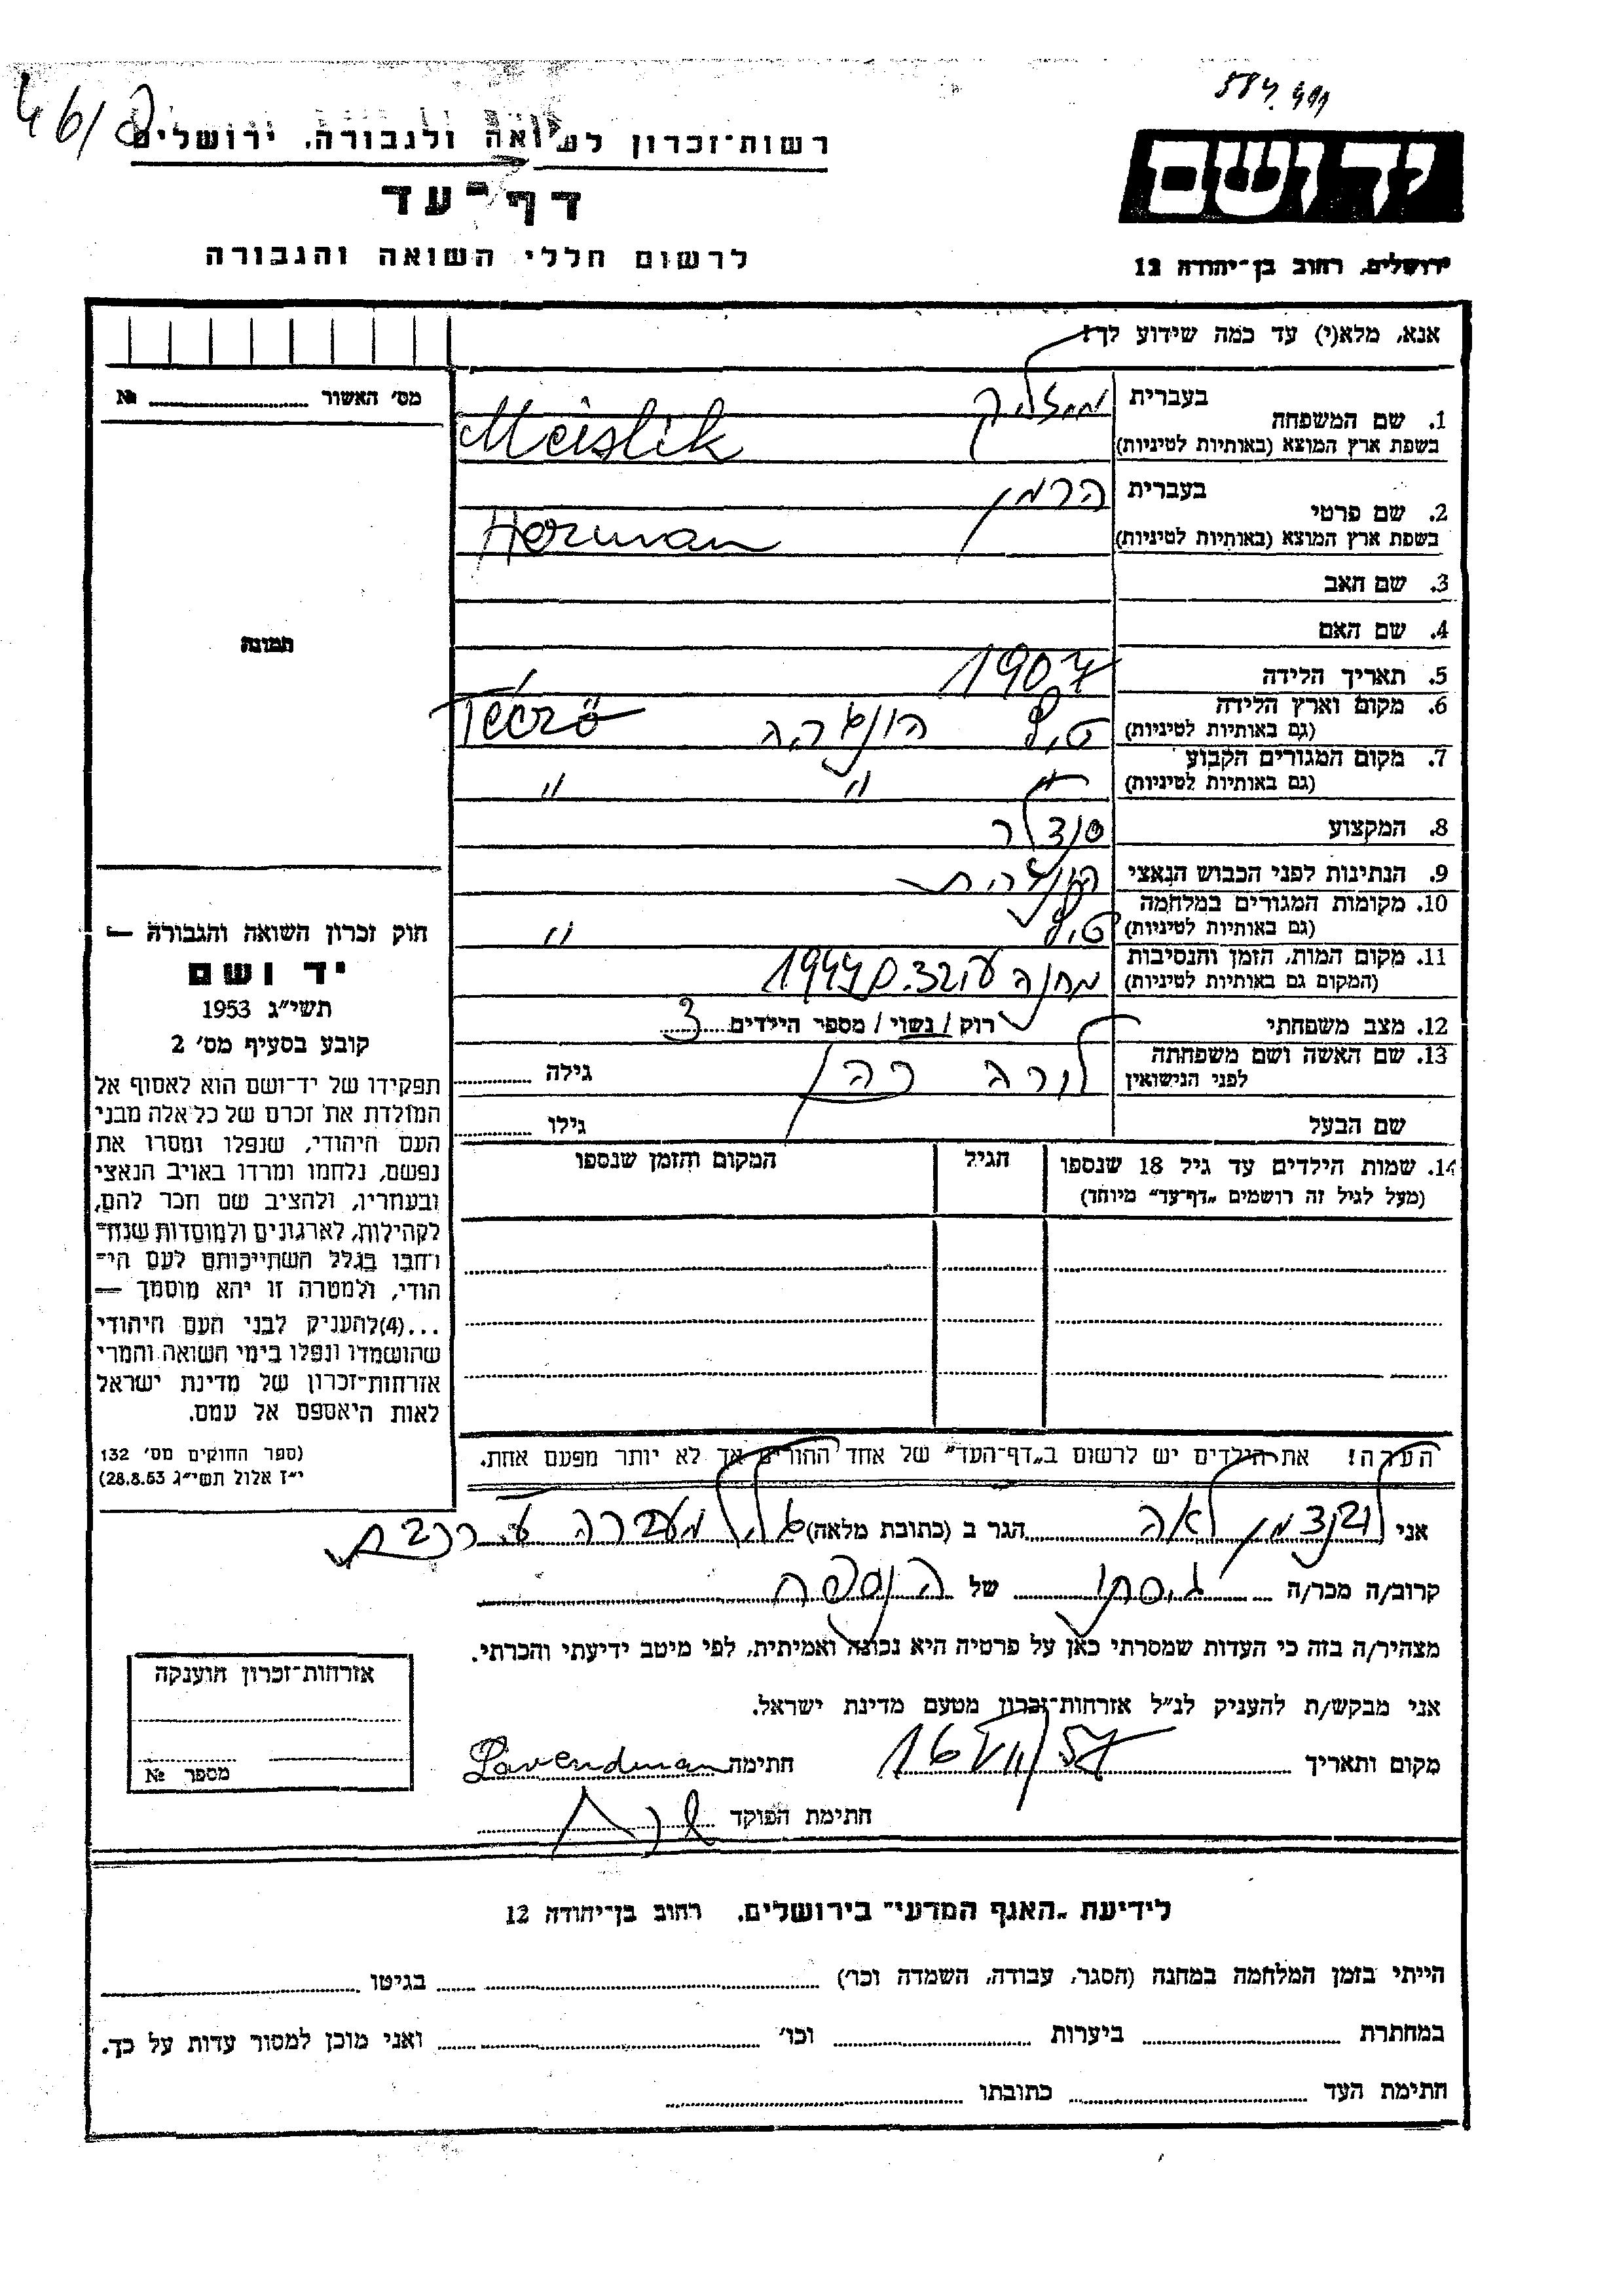 584.499
46/מ
יד ושם
ירושלים, רחוב בן־יהודה 12
רשות־זכרון לשואה ולגבורה, ירושלים
דף־עד
לרשום חללי השואה והגבורה
אנא, מלא(י) עד כמה שידוע לך!
מס׳ האשור № 
תמונה
1. שם המשפחה
בעברית מייזליק
בשפת ארץ המוצא (באותיות לטיניות) Meislik
2. שם פרטי
בעברית הרמן
בשפת ארץ המוצא (באותיות לטיניות) Herman
3. שם האב
4. שם האם
5. תאריך הלידה 1907
6. מקום וארץ הלידה
(גם באותיות לטיניות) הונגריה Técső
7. מקום המגורים הקבוע
(גם באותיות לטיניות) " " "
8. המקצוע סנדלר
9. הנתינות לפני הכבוש הנאצי הונגרית
10. מקומות המגורים במלחמה
(גם באותיות לטיניות) "
11. מקום המות, הזמן והנסיבות
(המקום גם באותיות לטיניות) מחנה 1944
12. מצב משפחתי רוק / נשוי / מספר הילדים 3
13. שם האשה ושם משפחתה
לפני הנישואין כהן גילה
שם הבעל גילו
14. שמות הילדים עד גיל 18 שנספו הגיל המקום והזמן שנספו
(מעל לגיל זה רושמים „דף־עד" מיוחד)
הערה! את הילדים יש לרשום ב„דף־העד" של אחד ההורים אך לא יותר מפעם אחת.
חוק זכרון השואה והגבורה —
יד ושם
תשי״ג 1953
קובע בסעיף מס׳ 2
תפקידו של יד־ושם הוא לאסוף אל
המולדת את זכרם של כל אלה מבני
העם היהודי, שנפלו ומסרו את
נפשם, נלחמו ומרדו באויב הנאצי
ובעוזריו, ולהציב שם וזכר להם,
לקהילות, לארגונים ולמוסדות שנח־
רבו בגלל השתייכותם לעם הי־
הודי, ולמטרה זו יהא מוסמך —
...(4) להעניק לבני העם היהודי
שהושמדו ונפלו בימי השואה והמרי
אזרחות־זכרון של מדינת ישראל
לאות היאספם אל עמם.
(ספר החוקים מס׳ 132
י״ז אלול תשי״ג 28.8.53)
אני לאה הגר ב (כתובת מלאה) מעברה
קרוב/ה מכר/ה גיסתו של הנספה
מצהיר/ה בזה כי העדות שמסרתי כאן על פרטיה היא נכונה ואמיתית, לפי מיטב ידיעתי והכרתי.
אני מבקש/ת להעניק לנ״ל אזרחות־זכרון מטעם מדינת ישראל.
מקום ותאריך 16/VII/57 חתימה Lavendman
חתימת הפוקד
אזרחות־זכרון הוענקה
מספר №
לידיעת „האגף המדעי" בירושלים, רחוב בן־יהודה 12
הייתי בזמן המלחמה במחנה (הסגר, עבודה, השמדה וכו׳) בגיטו
במחתרת ביערות וכו׳ ואני מוכן למסור עדות על כך.
חתימת העד כתובתו